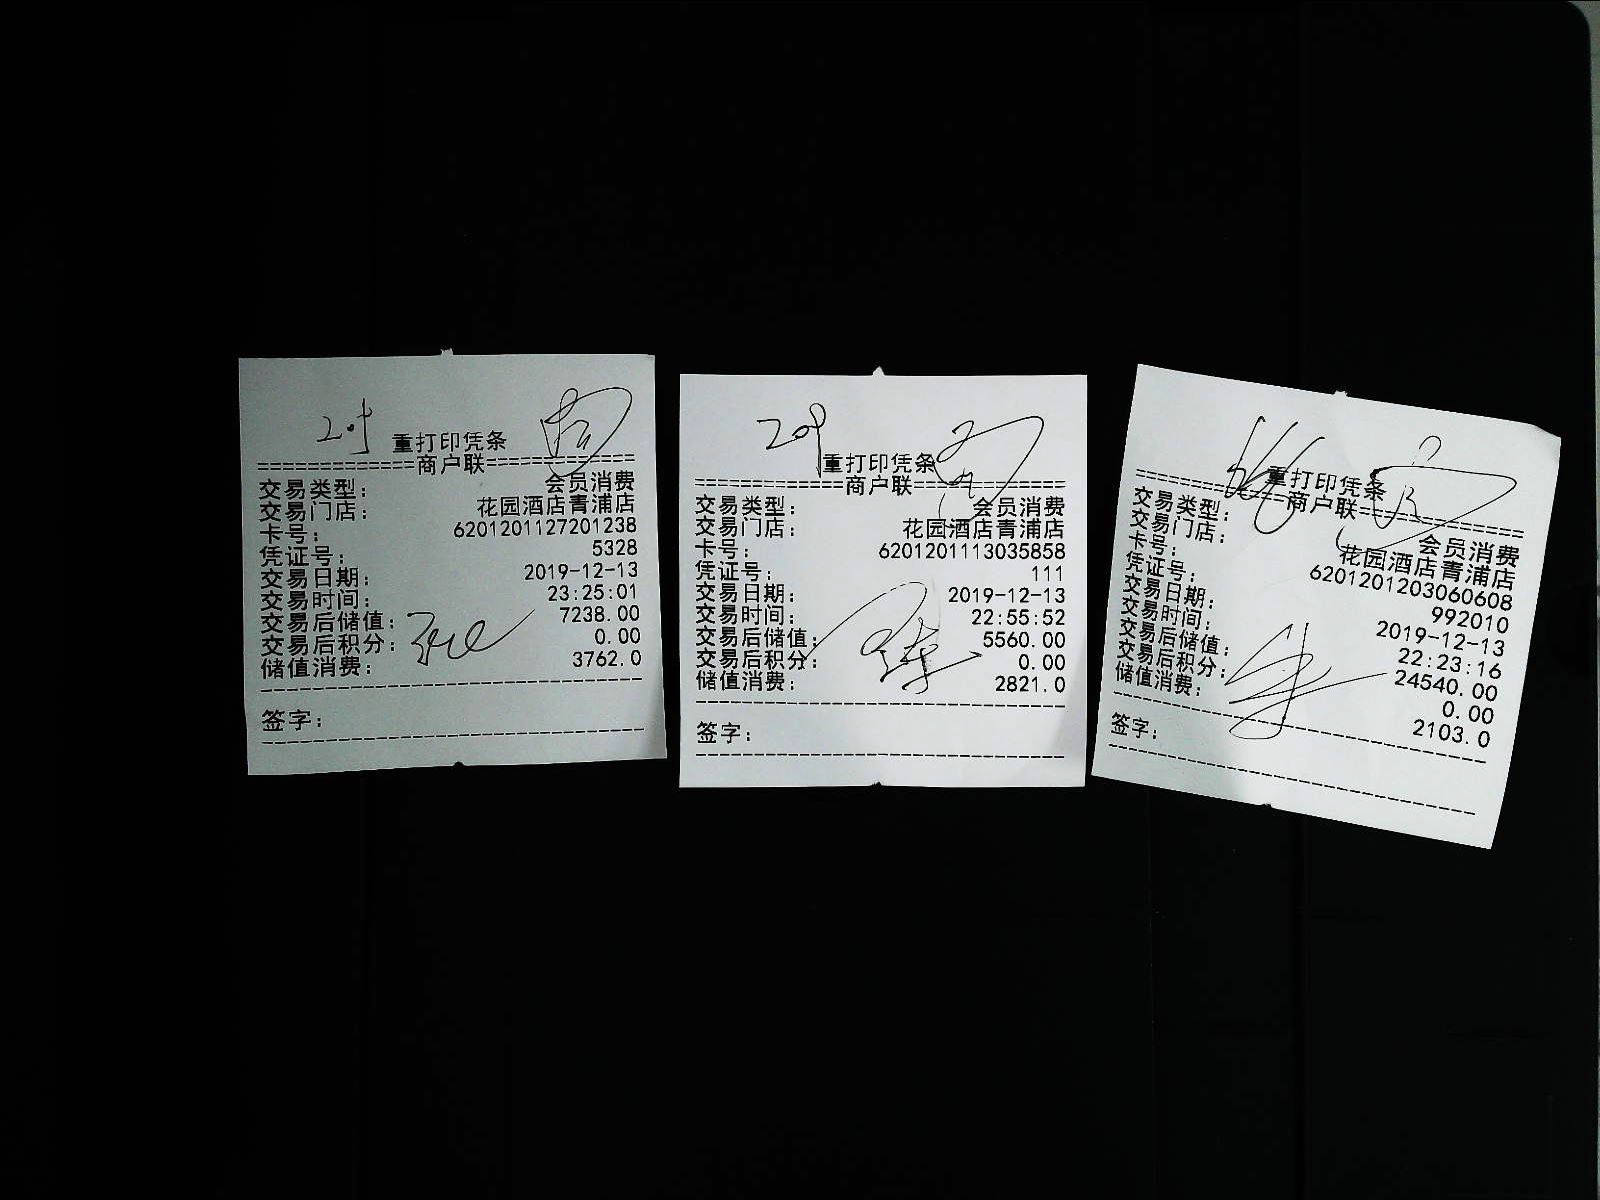 重打印凭条
============商户联============
交易类型： 会员消费
交易门店： 花园酒店青浦店
卡号： 6201201127201238
凭证号： 5328
交易日期： 2019-12-13
交易时间： 23:25:01
交易后储值： 7238.00
交易后积分： 0.00
储值消费： 3762.0
签字：
重打印凭条
============商户联============
交易类型： 会员消费
交易门店： 花园酒店青浦店
卡号： 6201201113035858
凭证号： 111
交易日期： 2019-12-13
交易时间： 22:55:52
交易后储值： 5560.00
交易后积分： 0.00
储值消费： 2821.0
签字：
重打印凭条
============商户联============
交易类型： 会员消费
交易门店： 花园酒店青浦店
卡号： 6201201203060608
凭证号： 992010
交易日期： 2019-12-13
交易时间： 22:23:16
交易后储值： 24540.00
交易后积分： 0.00
储值消费： 2103.0
签字：